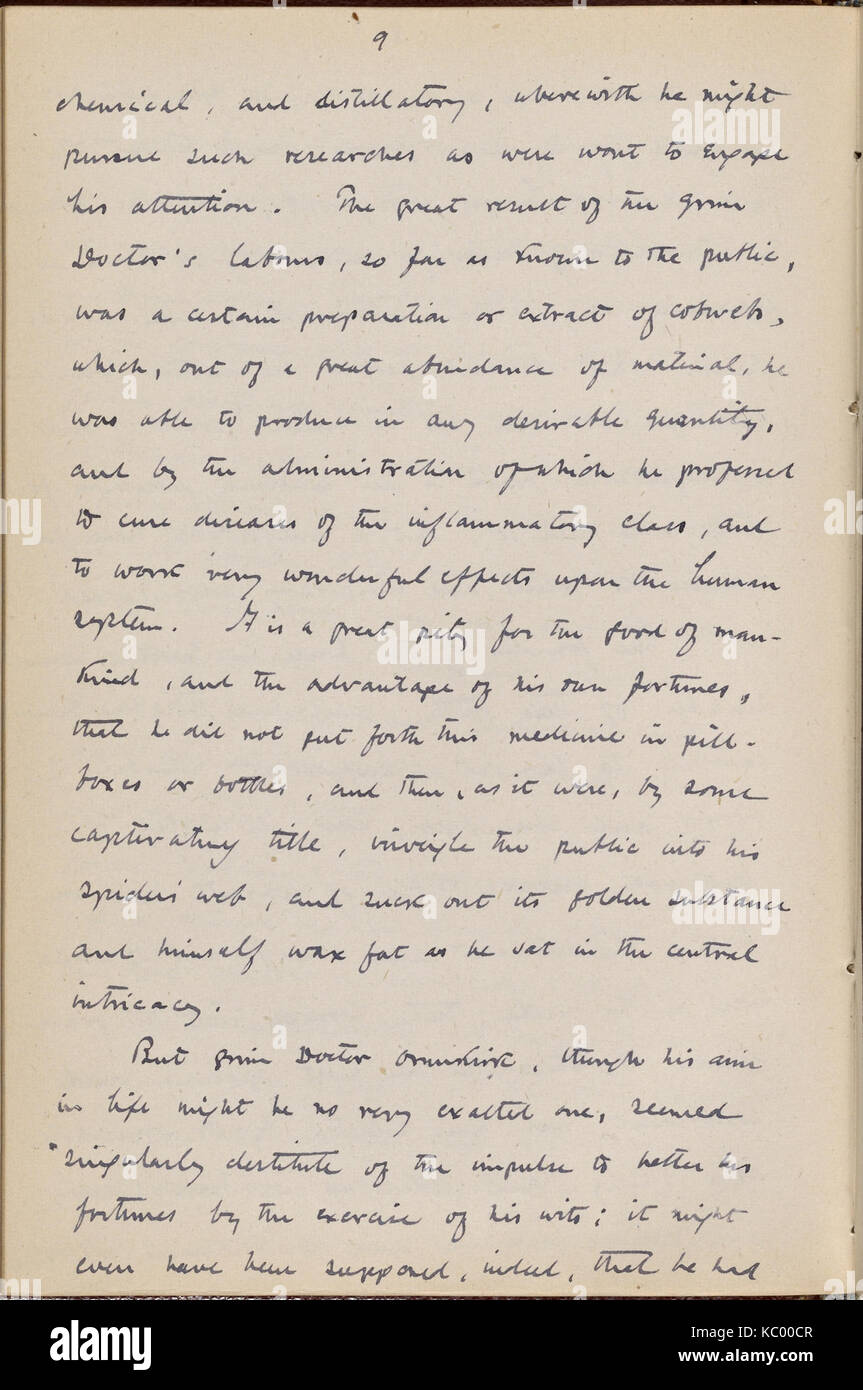 9
chemical, and distillatory, wherewith he might
pursue such researches as were wont to engage
his attention. The great result of the grim
Doctor's labours, so far as known to the public,
was a certain preparation or extract of cobwebs,
which, out of a great abundance of material, he
was able to produce in any desirable quantity,
and by the administration of which he professed
to cure diseases of the inflammatory class, and
to work very wonderful effects upon the human
system. It is a great pity for the good of man-
kind, and the advantage of his own fortunes,
that he did not put forth this medicine in pill-
boxes or bottles, and then, as it were, by some
captivating title, inveigle the public into his
spider's web, and suck out its golden substance
and himself wax fat as he sat in the central
intricacy.
But grim Doctor Ormskirk, though his aim
in life might be no very exalted one, seemed
singularly destitute of the impulse to better his
fortunes by the exercise of his wits; it might
even have been supposed, indeed, that he had
alamy
Image ID: KC00CR
www.alamy.com